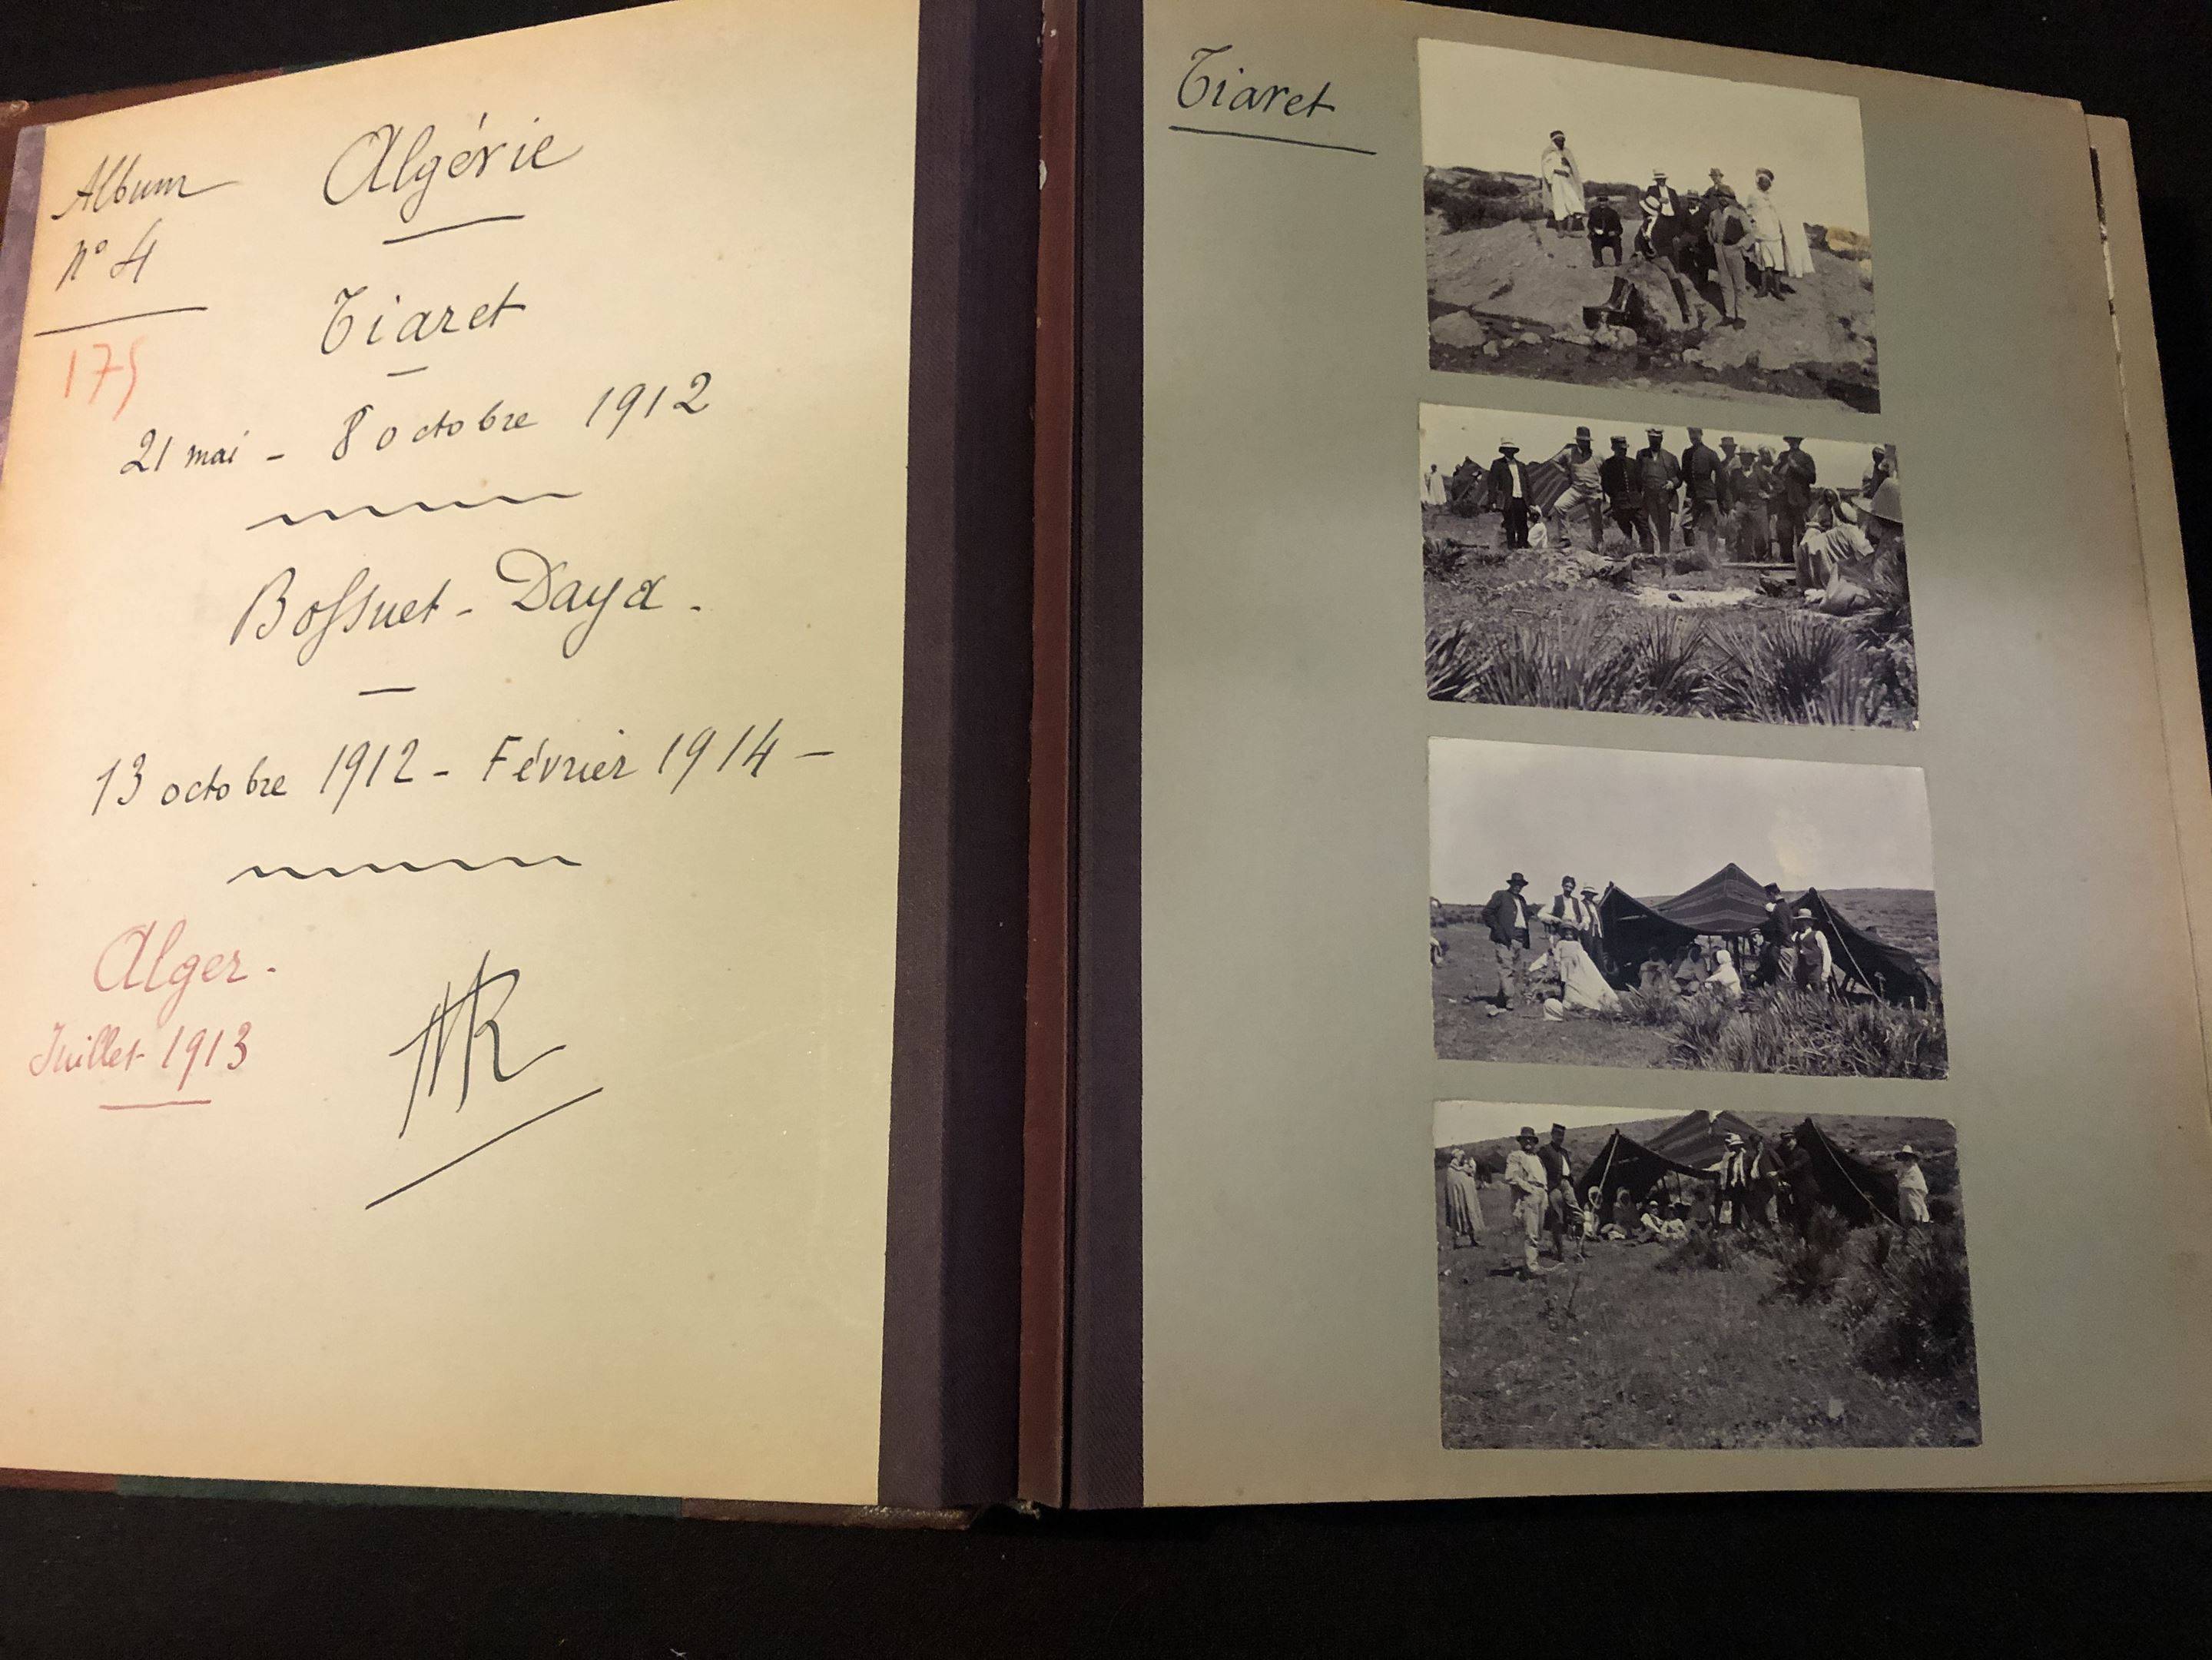 Album
n° 4
175
Algérie
Tiaret
21 mai - 8 octobre 1912
Bossuet - Daya.
13 octobre 1912 - Février 1914 -
Alger.
Juillet 1913
Tiaret